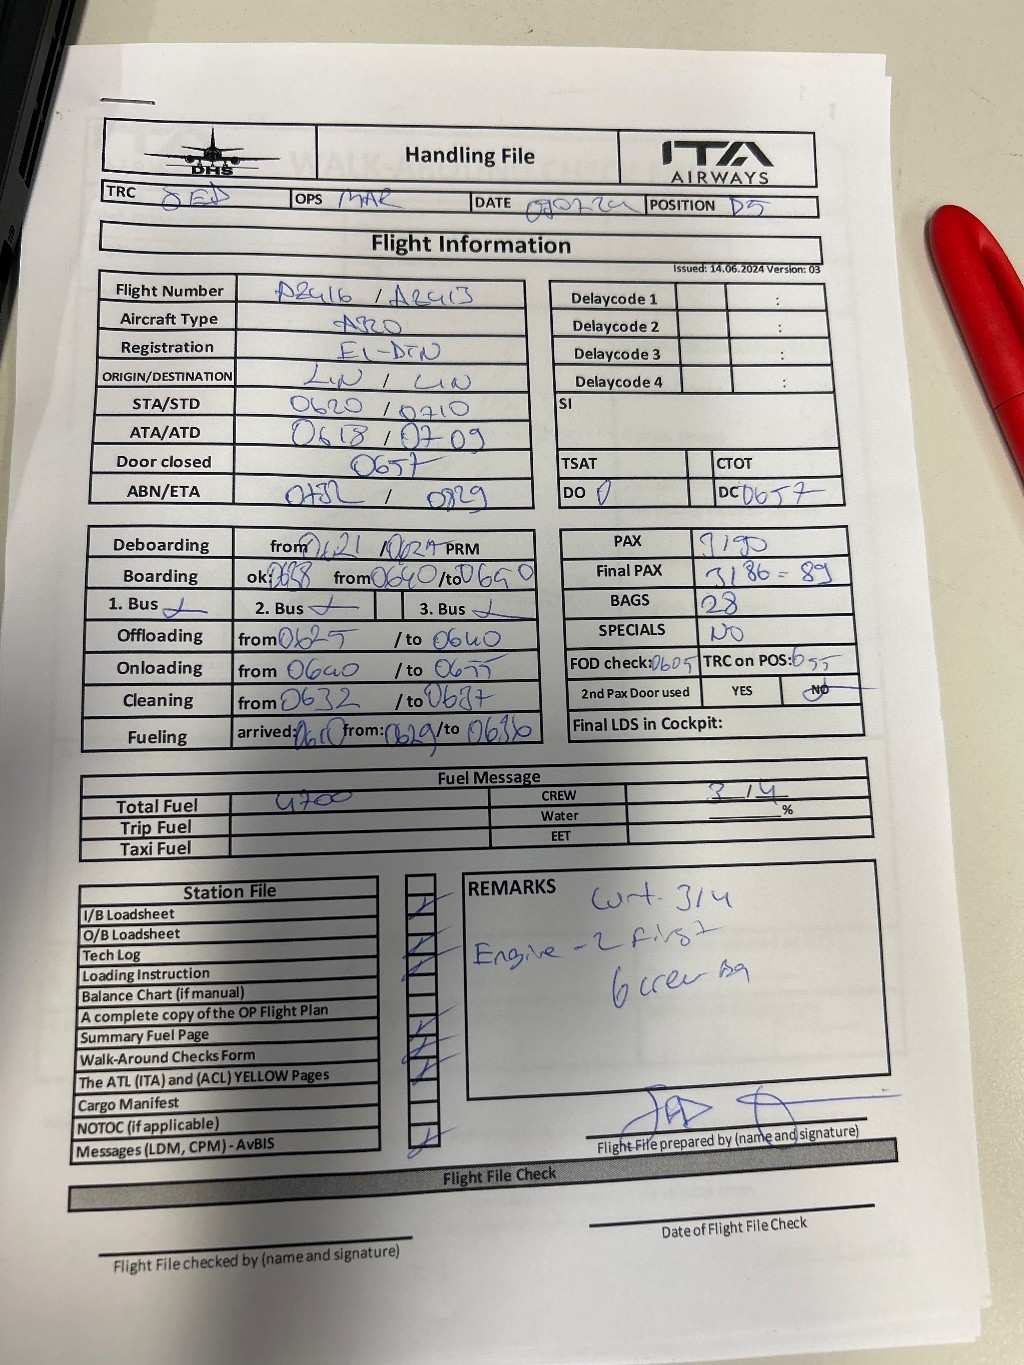 DHS
Handling File
ITA
AIRWAYS
TRC JED OPS MAR DATE POSITION D5
Flight Information
Issued: 14.06.2024 Version: 03
Flight Number AZ416 / AZ413
Aircraft Type A320
Registration EI-DTN
ORIGIN/DESTINATION LIN / LIN
STA/STD 0620 / 0710
ATA/ATD 0618 / 0709
Door closed 0657
ABN/ETA 0732 / 0829
Delaycode 1 :
Delaycode 2 :
Delaycode 3 :
Delaycode 4 :
SI
TSAT CTOT
DO 0 DC 0657
Deboarding from 0621 / 0627 PRM
Boarding ok: 0638 from 0640 /to 0650
1. Bus 2. Bus 3. Bus
Offloading from 0625 / to 0640
Onloading from 0640 / to 0655
Cleaning from 0632 / to 0637
Fueling arrived: from: 0629 /to 0636
PAX 3/90
Final PAX 3/86 = 89
BAGS 28
SPECIALS NO
FOD check: 0605 TRC on POS: 655
2nd Pax Door used YES NO
Final LDS in Cockpit:
Fuel Message
Total Fuel 4700 CREW 3 / 4
Trip Fuel Water %
Taxi Fuel EET
Station File
I/B Loadsheet
O/B Loadsheet
Tech Log
Loading Instruction
Balance Chart (if manual)
A complete copy of the OP Flight Plan
Summary Fuel Page
Walk-Around Checks Form
The ATL (ITA) and (ACL) YELLOW Pages
Cargo Manifest
NOTOC (if applicable)
Messages (LDM, CPM) - AvBIS
REMARKS
3/4
Engine - 2 first
6 crew
JED
Flight File prepared by (name and signature)
Flight File Check
Flight File checked by (name and signature)
Date of Flight File Check